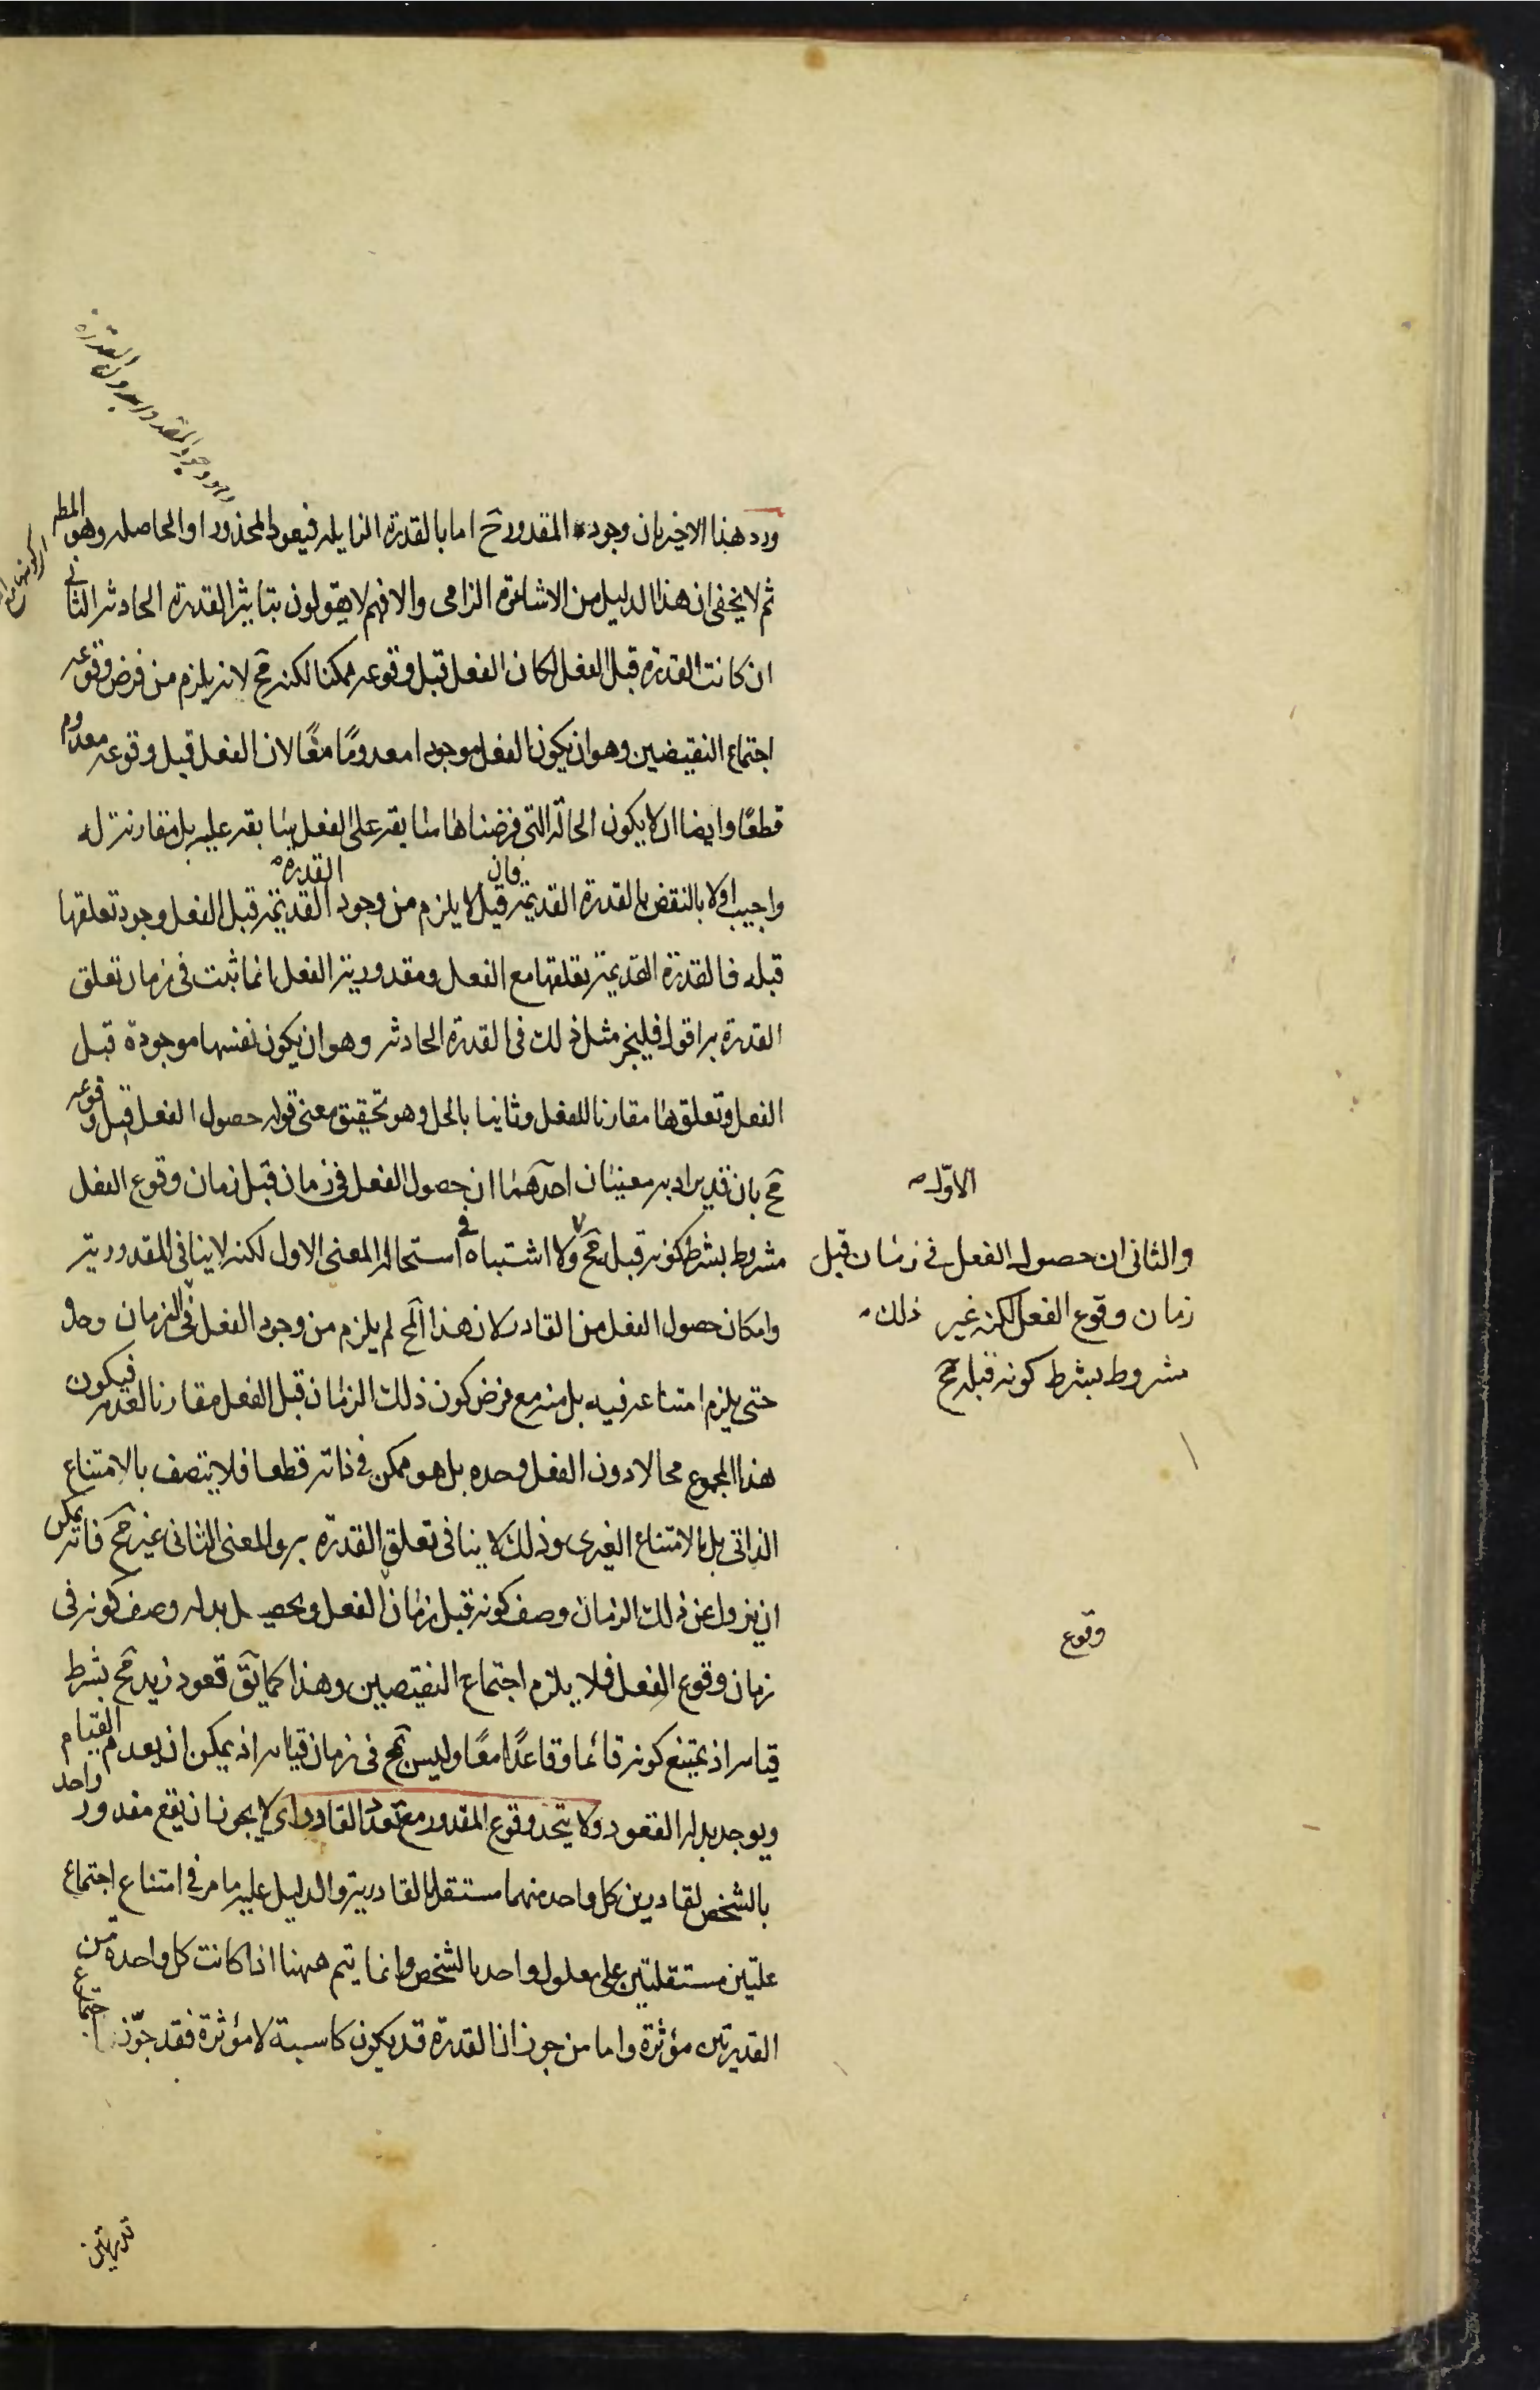 وهو وجود المقدور بدون القدرة
ورد هذا الاخير بان وجود المقدور ح اما بالقدرة الزايله فيعود المحذور او الحاصله وهو المط
ثم لا يخفى ان هذا الدليل من الاشاعرة الزامى والا فهم لا يقولون بتاثير القدرة الحادثه الثانى
ان كانت القدرة قبل الفعل لكان الفعل قبل وقوعه ممكنا لكنه مح لانه يلزم من فرض وقوعه
اجتماع النقيضين وهو ان يكون الفعل موجودا معدومًا معًا لان الفعل قبل وقوعه معدوم
قطعًا وايضا ان لا يكون الحالة التى فرضناها سابقه على الفعل سابقه عليه بل مقارنة له
واجيب اولا بالنقض بالقدرة القديمة فان قيل لا يلزم من وجود القدرة القديمة قبل الفعل وجود تعلقها
قبله فالقدرة القديمة تعلقها مع الفعل ومقدورية الفعل انما ثبت فى زمان تعلق
القدرة به اقول فليجز مثل ذلك فى القدرة الحادثه وهو ان يكون نفسها موجودة قبل
الفعل وتعلقها مقارنا للفعل وثانيا بالحل وهو تحقيق معنى قوله حصول الفعل قبل وقوعه
مح بان قد يراد به معنيان احدهما ان حصول الفعل فى زمان قبل زمان وقوع الفعل
مشروط بشرط كونه قبل مح ولا اشتباه فى استحاله المعنى الاول لكنه لا ينافى المقدورية
وامكان حصول الفعل من القادر لان هذا المح لم يلزم من وجود الفعل فى الزمان وحده
حتى يلزم امتناعه فيه بل منه مع فرض كون ذلك الزمان قبل الفعل مقارنا لعدمه فيكون
هذا المجموع محالا دون الفعل وحده بل هو ممكن فى ذاته قطعا فلا يتصف بالامتناع
الذاتى بل بالامتناع الغيرى وذلك لا ينافى تعلق القدرة به والمعنى الثانى غير مح فانه يمكن
ان يزول عن ذلك الزمان وصف كونه قبل زمان الفعل ويحصل بدله وصف كونه فى
زمان وقوع الفعل فلا يلزم اجتماع النقيضين وهذا كما يق قعود زيد مح بشرط
قيامه اذ يمتنع كونه قائما وقاعدًا معًا وليس بمح فى زمان قيامه اذ يمكن ان يعدم القيام
ويوجد بدله القعود ولا يتحد وقوع المقدور مع تعدد القادر اى لا يجوز ان يقع مقدور واحد
بالشخص لقادرين كل واحد منهما مستقل بالقادرية والدليل عليه ما مر فى امتناع اجتماع
علتين مستقلتين على معلول واحد بالشخص وانما يتم ههنا اذا كانت كل واحدة من
القدرتين مؤثرة واما من جوز ان القدرة قد يكون كاسبة لا مؤثرة فقد جوّز اجتماع
قدرتين
الاوّل
والثانى ان حصول الفعل فى زمان قبل
زمان وقوع الفعل لكنه غير ذلك
مشروط بشرط كونه قبله مح
وقوع